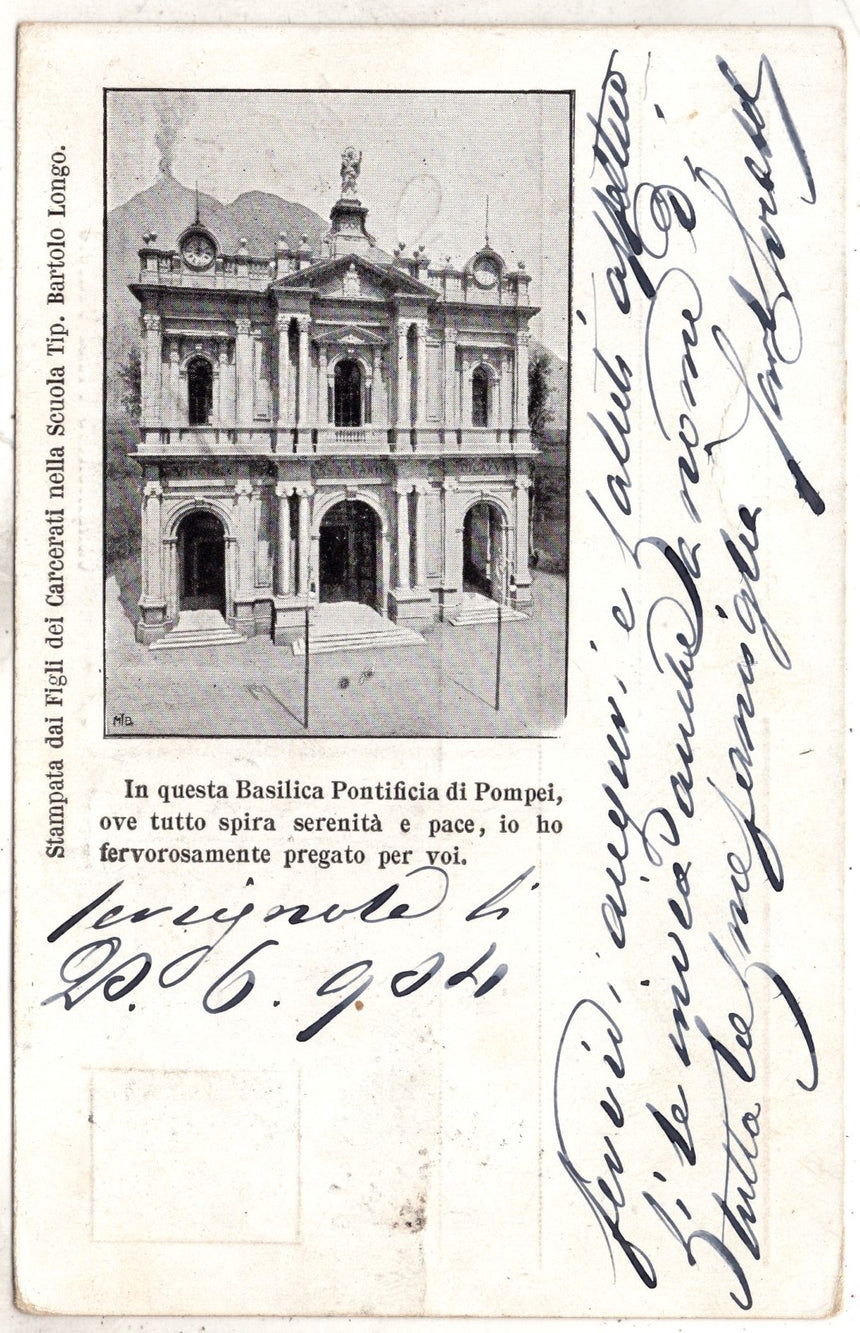 Stampata dai Figli dei Carcerati nella Scuola Tip. Bartolo Longo.
MTB
In questa Basilica Pontificia di Pompei,
ove tutto spira serenità e pace, io ho
fervorosamente pregato per voi.
li
20. 6. 904
fervidi auguri e saluti affettuo
si te invio anche a nome di
tutta la mia famiglia